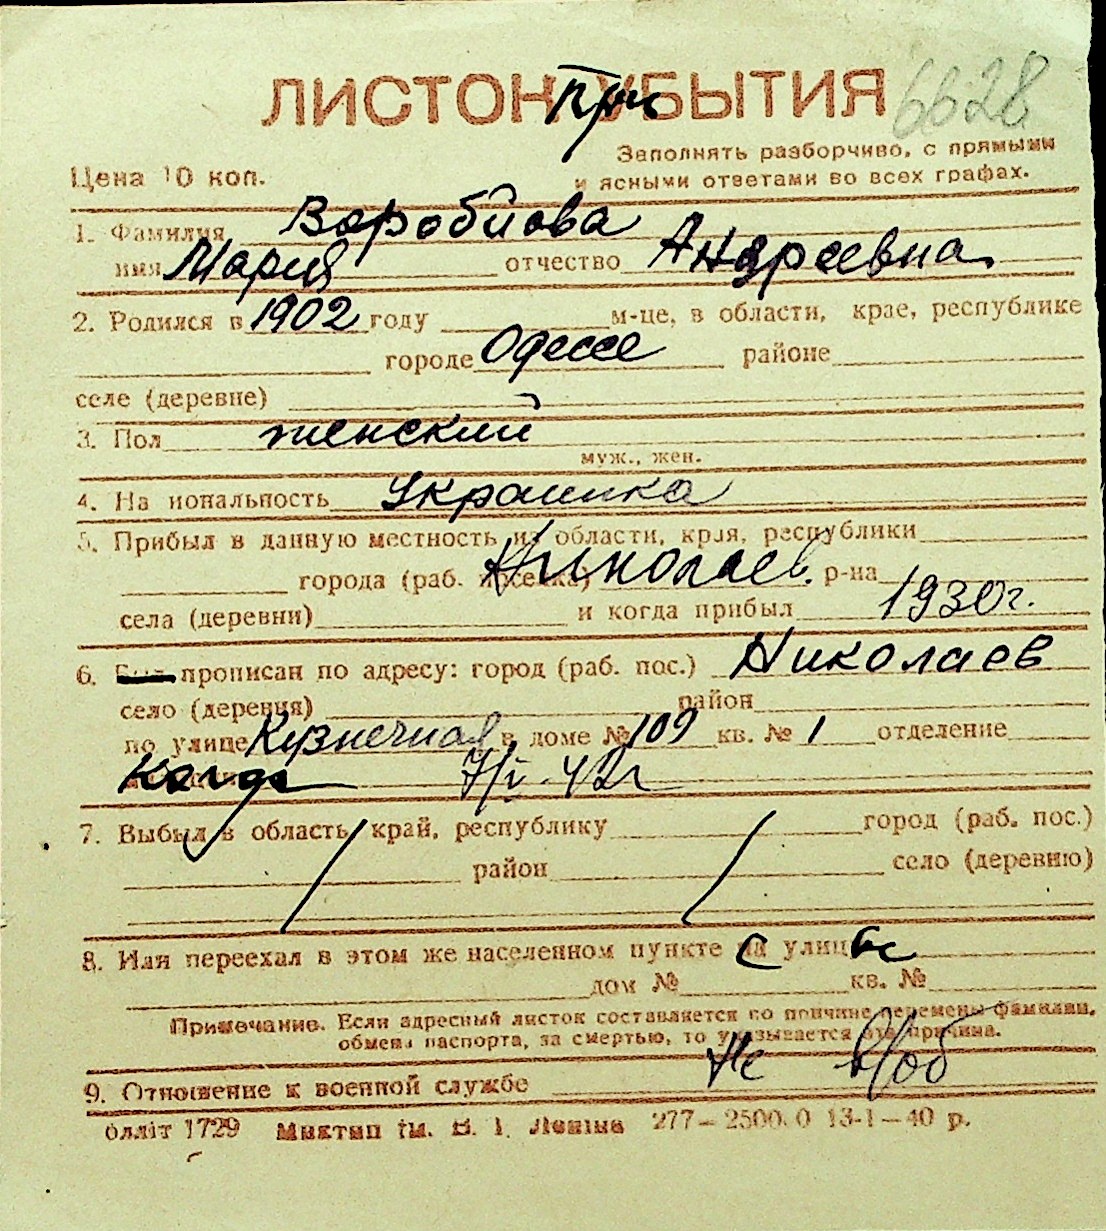 ЛИСТОК при БЫТИЯ 6628
Заполнять разборчиво, с прямыми
Цена 10 коп. и ясными ответами во всех графах.
1. Фамилия Воробйова
имя Мария отчество Андреевна
2. Родился в 1902 году м-це, в области, крае, республике
городе Одессе районе
селе (деревне)
3. Пол женский
муж., жен.
4. На иональность Украинка
5. Прибыл в данную местность из области, края, республики
города (раб. поселка) Николаев. р-на
села (деревни) и когда прибыл 1930г.
6. прописан по адресу: город (раб. пос.) Николаев
село (деревня) район
по улице Кузнечная в доме № 109 кв. № 1 отделение
когда 7/V-42г
7. Выбыл в область, край, республику город (раб. пос.)
район село (деревню)
8. Или переехал в этом же населенном пункте с улицы
дом № кв. №
Примечание. Если адресный листок составляется по причине перемены фамилии,
обмена паспорта, за смертью, то указывается эта причина.
Не в/об
9. Отношение к военной службе
блліт 1729 Миктип ім. В. І. Леніна 277–2500.0 13-1–40 р.